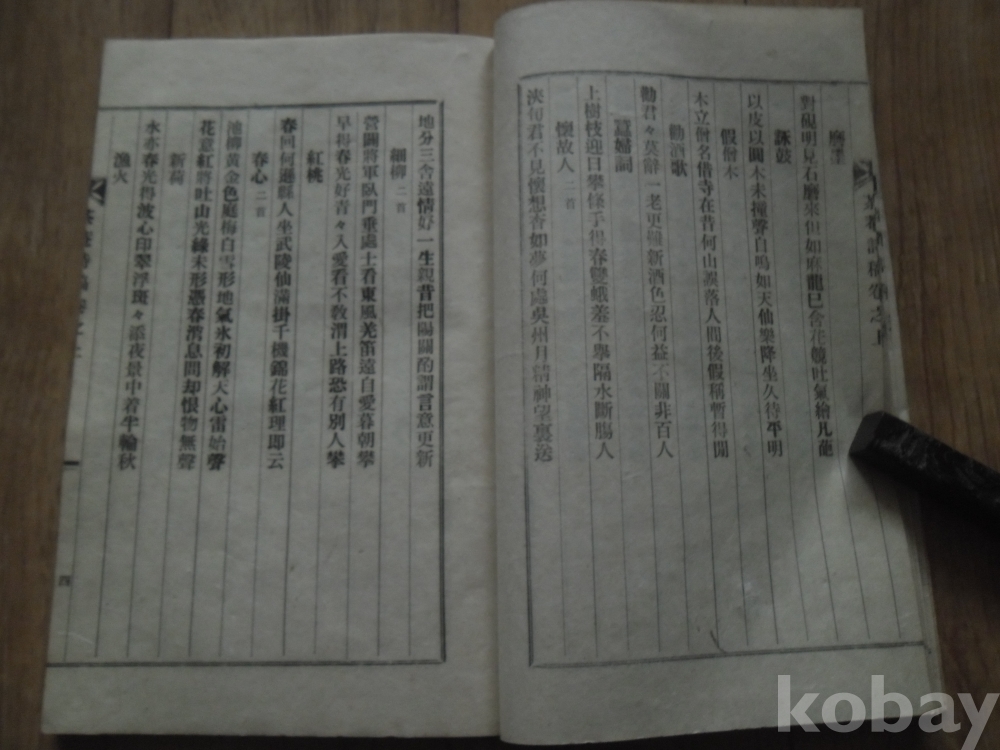 磨墨
對硯明見石磨來但如麻龍巳含花饒吐氣繪凡葩
詠鼓
以皮以圓木未撞聲自鳴如天仙樂降坐久待平明
假僧木
木立僧名借寺在昔何山誤落人間後假稱暫得閒
勸酒歌
勸君々莫辭一老更難新酒色忍何益不關非百人
蠶婦詞
上樹枝迎曰攀條乎得春鬢蛾羞不擧隔水斷腸人
懷故人 二首
浹旬君不見懷想杳如夢何處吳州月精神望裏送
地分三舍遠情好一生親昔把陽關酌謂言意更新
細柳 二首
營闢將軍臥門垂處士看東風羌笛遠自愛暮朝攀
早得春光好靑々入愛看不敎渭上路恐有別人攀
紅桃
春回何遜縣人坐武陵仙滿掛千機錦花紅理即云
春心 二首
池柳黃金色庭梅白雪形地氣氷初解天心雷始聲
花意紅將吐山光綠未形憑春消息問却恨物無聲
新荷
水亦春光得波心印翠浮斑々添夜景中着半輪秋
漁火
四
kobay